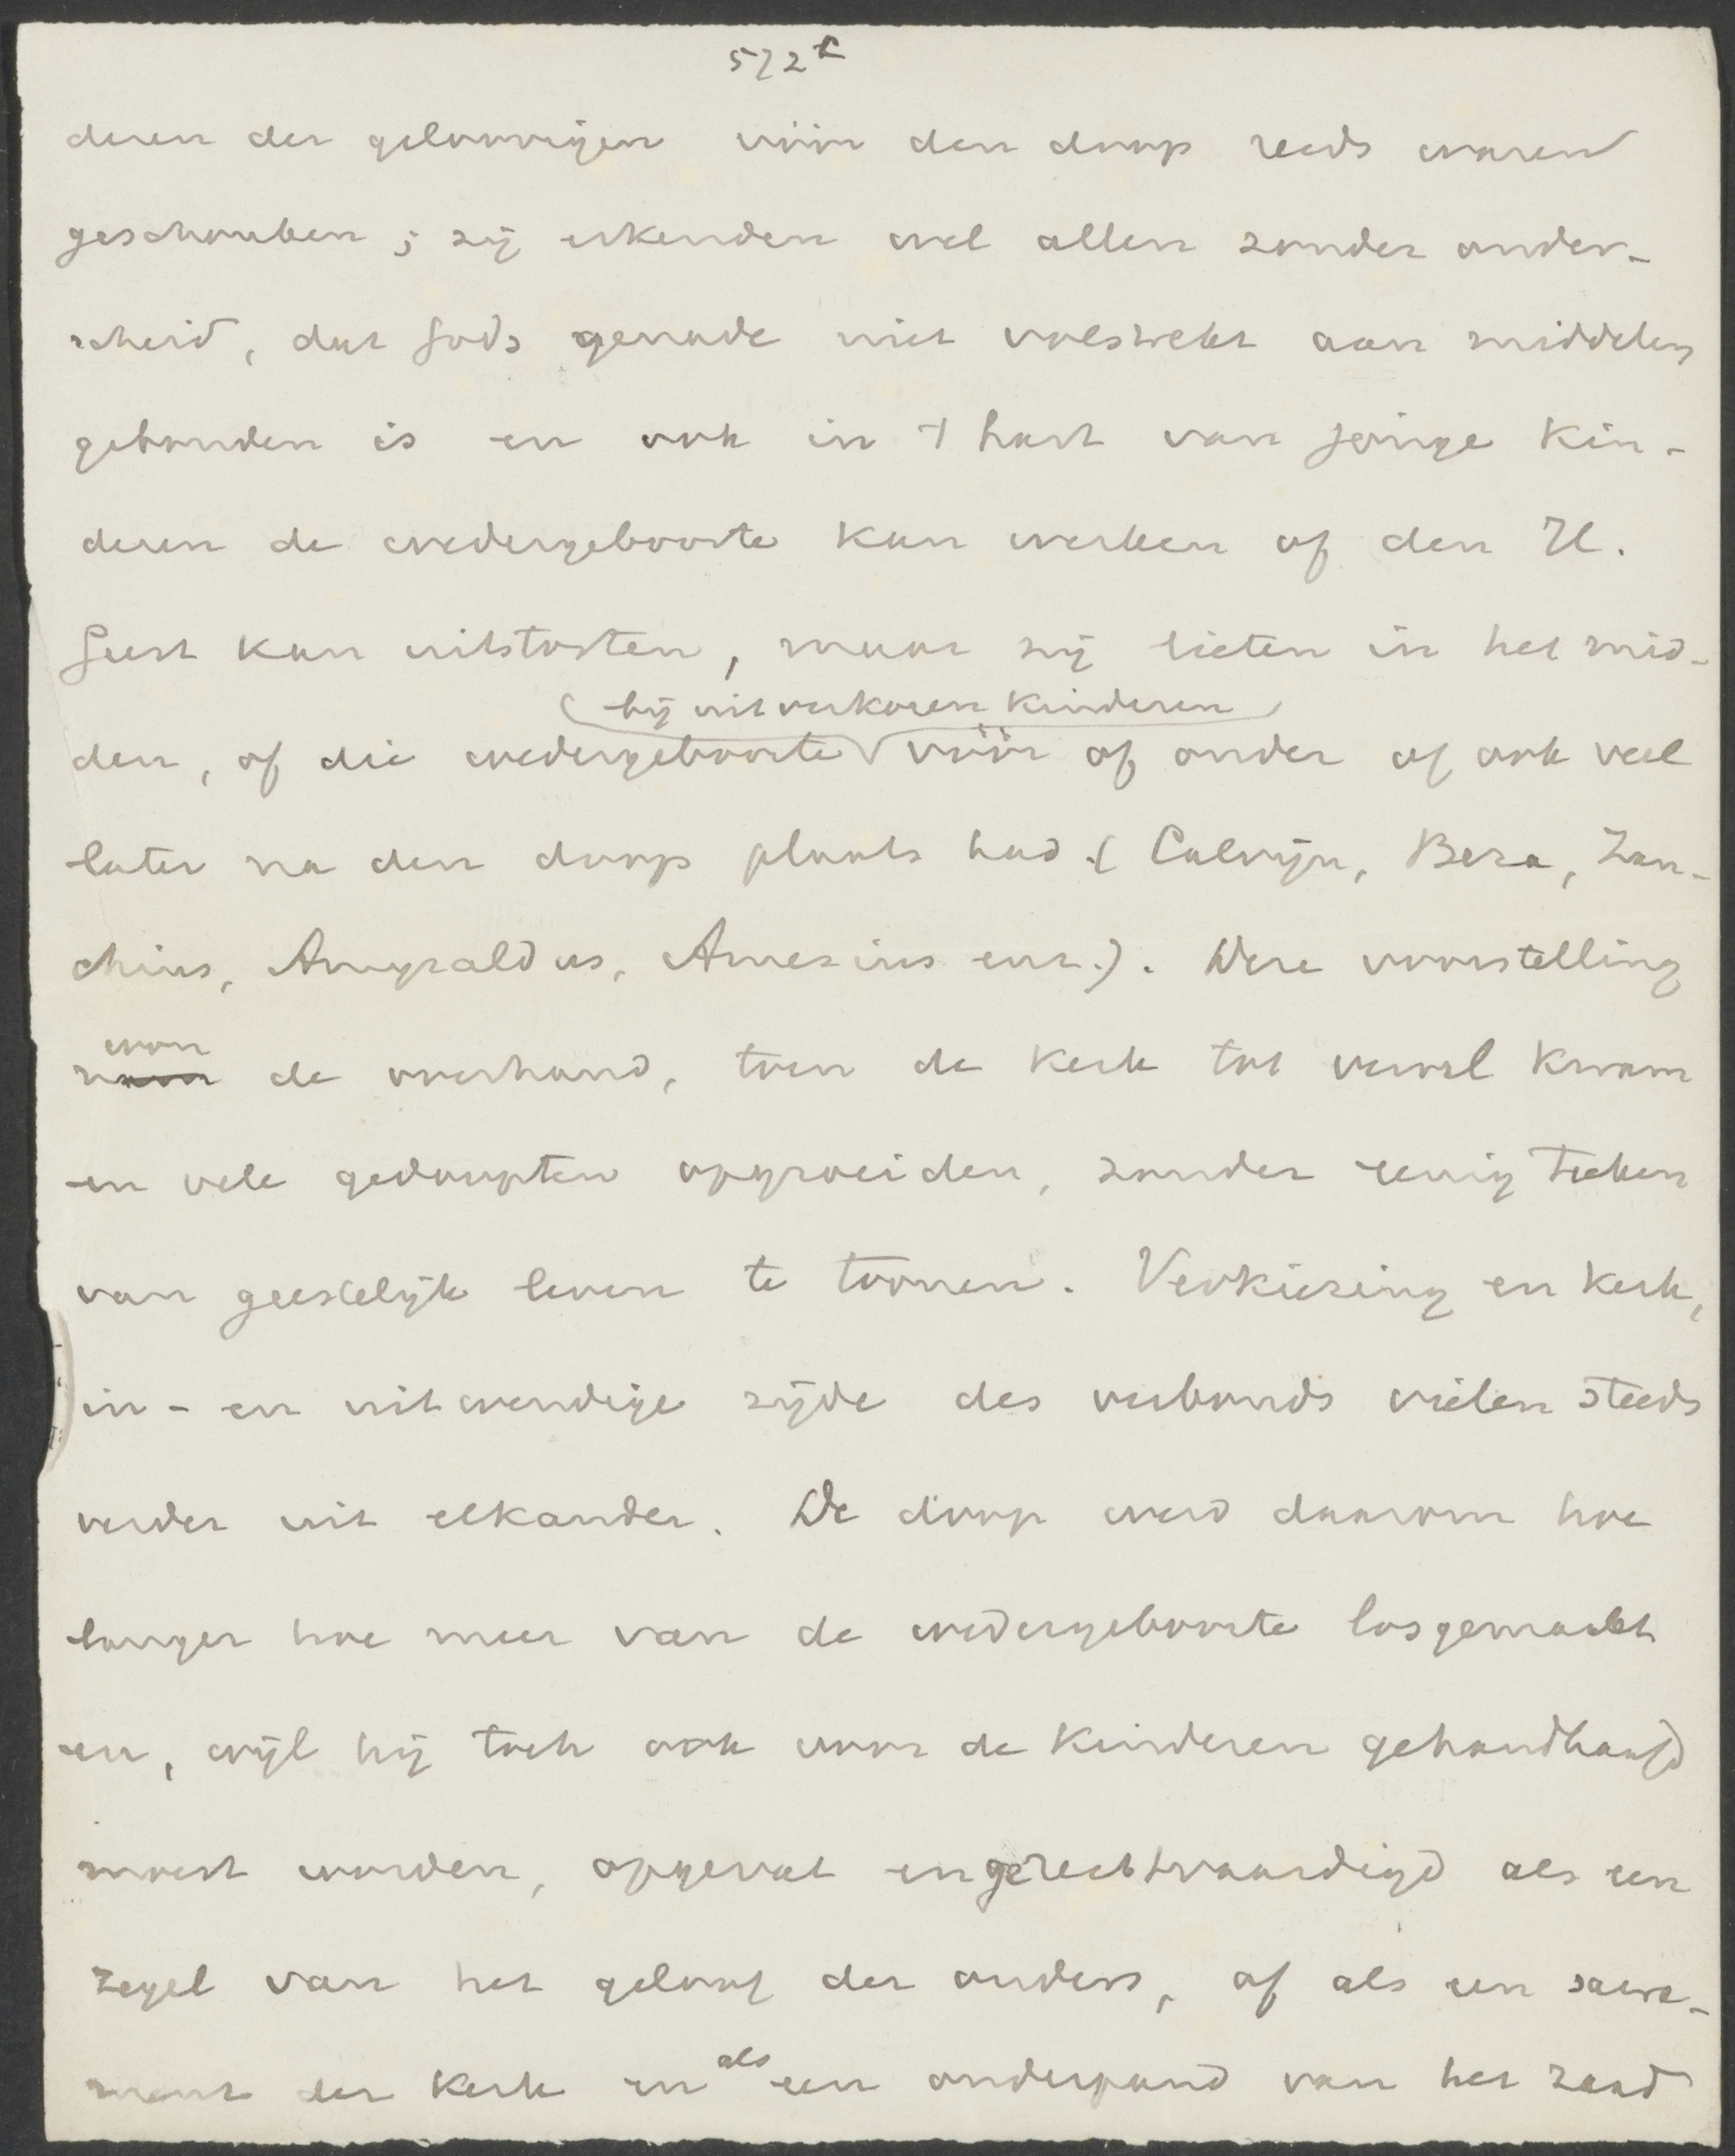 572c
deren der geloovigen vóór den doop reeds waren
geschonken; zij erkenden wel allen zonder onder-
scheid, dat Gods genade niet volstrekt aan middelen
gebonden is en ook in 't hart van jonge kin-
deren de wedergeboorte kan werken of den H.
Geest kan uitstorten, maar zij lieten in het mid-
(bij uitverkoren kinderen)
den, of die wedergeboorte vóór of onder of ook veel
later na den doop plaats had. (Calvijn, Beza, Zan-
chius, Amyraldus, Amesius enz.). Deze voorstelling
won
nam de overhand, toen de kerk tot verval kwam
en vele gedoopten opgroeiden, zonder eenig teeken
van geestelijk leven te toonen. Verkiezing en kerk,
in- en uitwendige zijde des verbonds vielen steeds
verder uit elkander. De doop werd daarom hoe
langer hoe meer van de wedergeboorte losgemaakt
en, wijl hij toch ook voor de kinderen gehandhaafd
moest worden, opgevat en gerechtvaardigd als een
zegel van het geloof der ouders, of als een sacra-
als
ment der kerk en een onderpand van het zaad